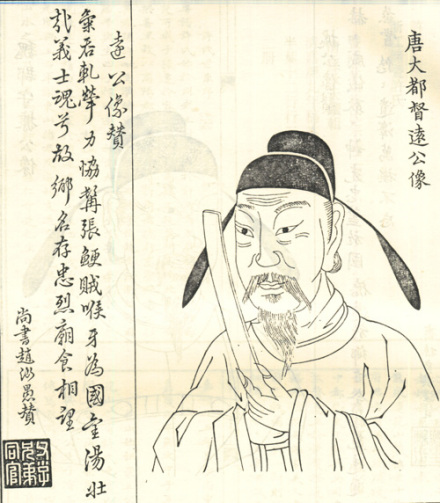 唐大都督遠公像
遠公像贊
氣吞軋犖力協張鯁賊喉牙為國金湯壯
哉義士魂兮故鄉名存忠烈廟食相望
尚書趙汝愚贊
父子兄弟同官